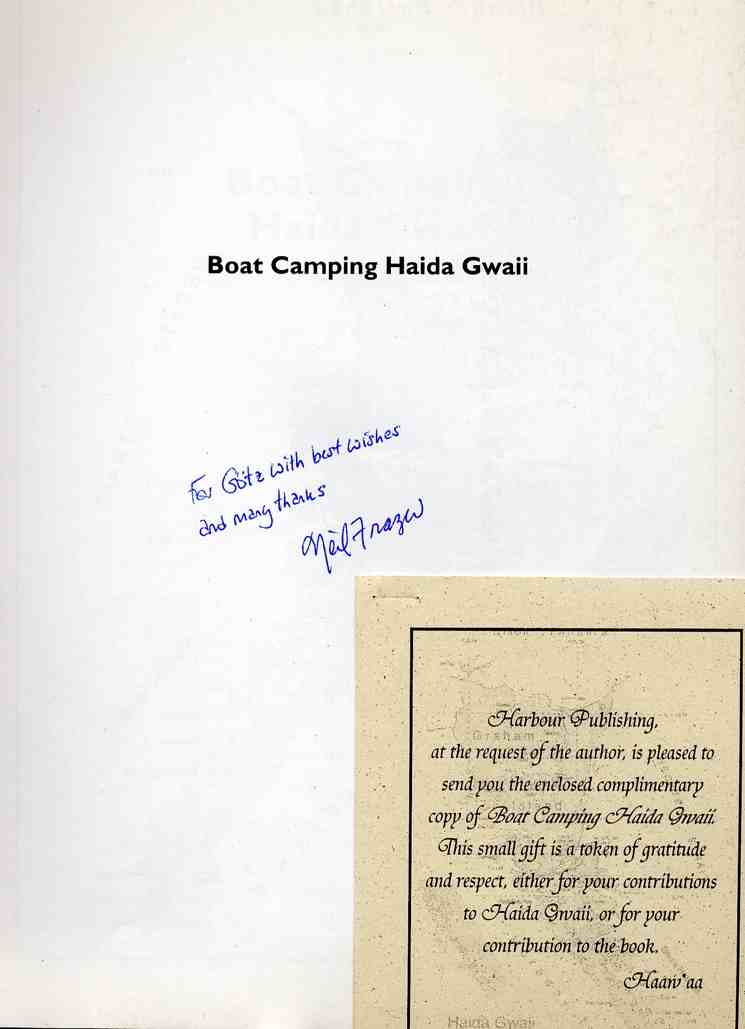 Boat Camping Haida Gwaii
For Götz with best wishes
and many thanks
Neil Frazer
Graham
Island
Harbour Publishing,
at the request of the author, is pleased to
send you the enclosed complimentary
copy of Boat Camping Haida Gwaii.
This small gift is a token of gratitude
and respect, either for your contributions
to Haida Gwaii, or for your
contribution to the book.
Haaw'aa
Haida Gwaii